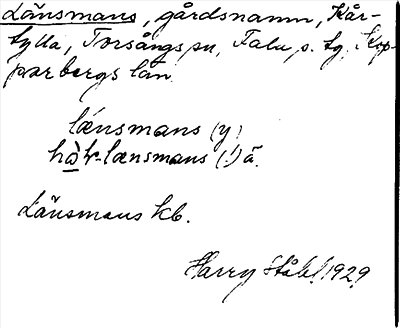 Länsmans, gårdsnamn, Kår-
tylla, Torsångs sn, Falu s. tg, Kop-
parbergs län.
lænsmans (y)
hàk-lænsmans (!) ä.
Länsmans kb.
Harry Ståhl 1929